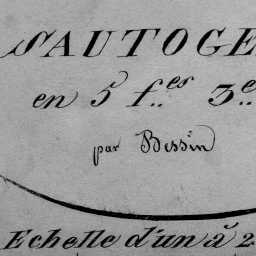 SAUTOGE
en 5 f.es 3.e
par Bessin
Echelle d'un à 2